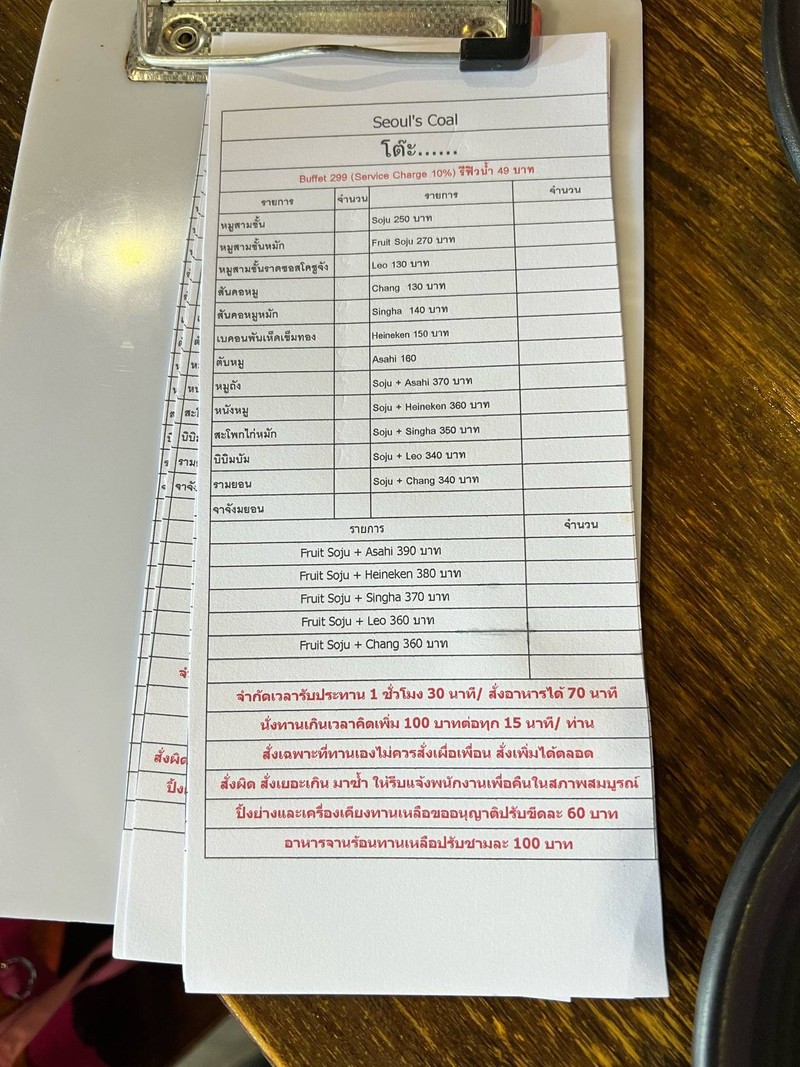 Seoul's Coal
โต๊ะ......
Buffet 299 (Service Charge 10%) รีฟิวน้ำ 49 บาท
รายการ จำนวน รายการ จำนวน
หมูสามชั้น Soju 250 บาท
หมูสามชั้นหมัก Fruit Soju 270 บาท
หมูสามชั้นราดซอสโคชูจัง Leo 130 บาท
สันคอหมู Chang 130 บาท
สันคอหมูหมัก Singha 140 บาท
เบคอนพันเห็ดเข็มทอง Heineken 150 บาท
ตับหมู Asahi 160
หมูถัง Soju + Asahi 370 บาท
หนังหมู Soju + Heineken 360 บาท
สะโพกไก่หมัก Soju + Singha 350 บาท
บิบิมบับ Soju + Leo 340 บาท
รามยอน Soju + Chang 340 บาท
จาจังมยอน
รายการ จำนวน
Fruit Soju + Asahi 390 บาท
Fruit Soju + Heineken 380 บาท
Fruit Soju + Singha 370 บาท
Fruit Soju + Leo 360 บาท
Fruit Soju + Chang 360 บาท
จำกัดเวลารับประทาน 1 ชั่วโมง 30 นาที/ สั่งอาหารได้ 70 นาที
นั่งทานเกินเวลาคิดเพิ่ม 100 บาทต่อทุก 15 นาที/ ท่าน
สั่งเฉพาะที่ทานเองไม่ควรสั่งเผื่อเพื่อน สั่งเพิ่มได้ตลอด
สั่งผิด สั่งเยอะเกิน มาซ้ำ ให้รีบแจ้งพนักงานเพื่อคืนในสภาพสมบูรณ์
ปิ้งย่างและเครื่องเคียงทานเหลือขออนุญาติปรับขีดละ 60 บาท
อาหารจานร้อนทานเหลือปรับชามละ 100 บาท